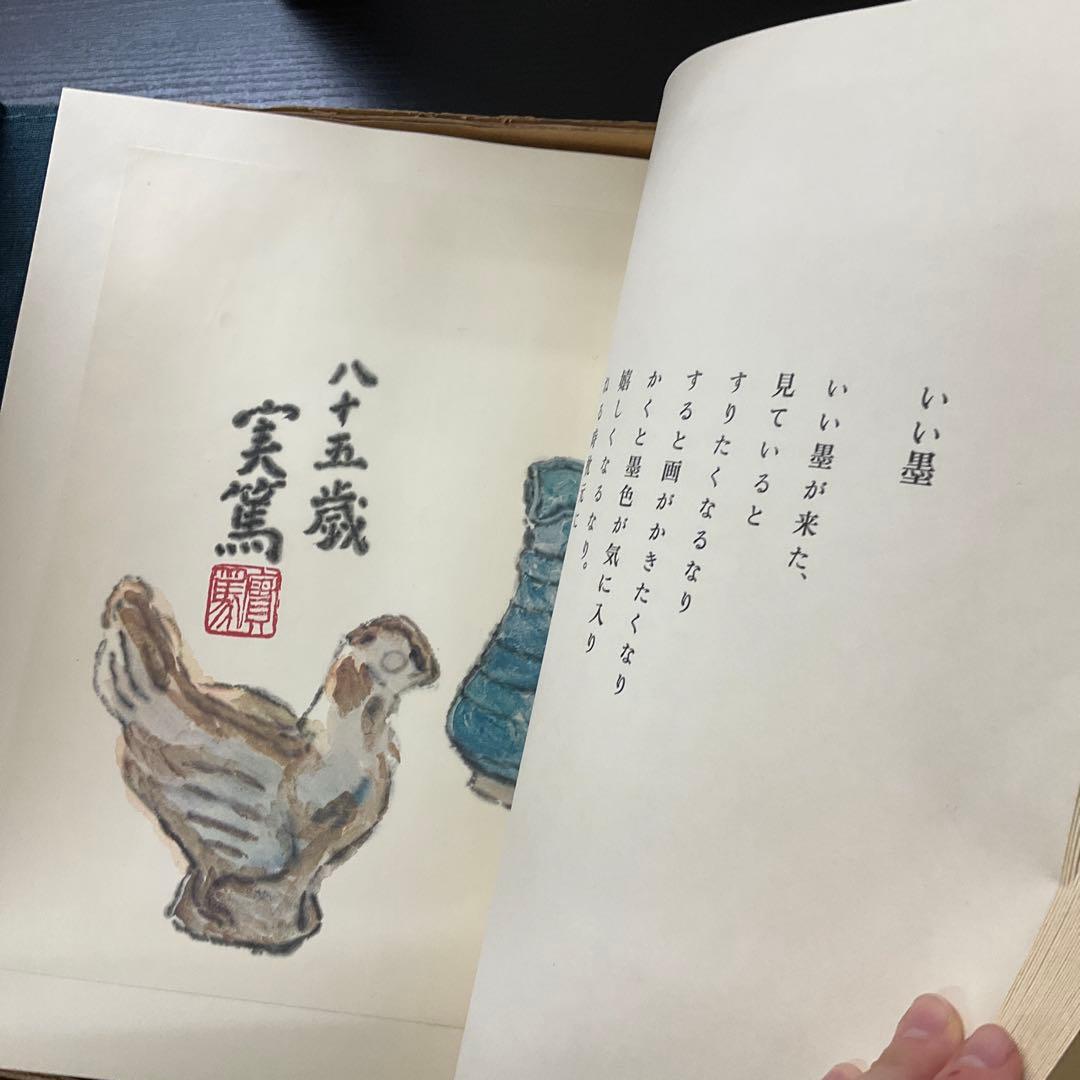 いい墨
いい墨が来た、
見ていると
すりたくなるなり
すると画がかきたくなり
かくと墨色が気に入り
嬉しくなるなり。
八十五歳
実篤
實篤